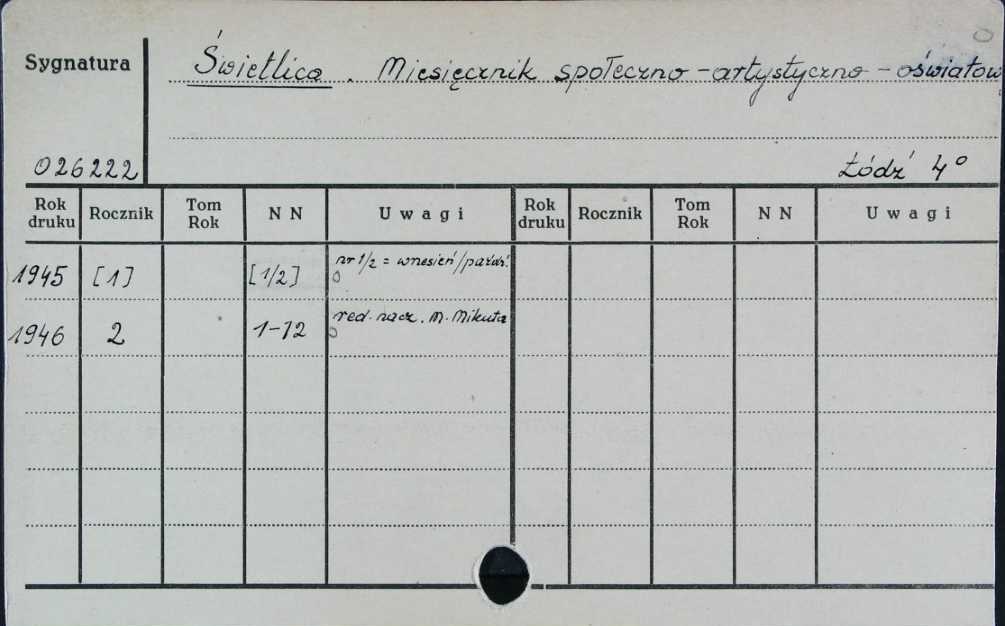 Sygnatura Świetlica. Miesięcznik społeczno-artystyczno-oświatow
026222 Łódź 4°
Rok druku Rocznik Tom Rok N N Uwagi Rok druku Rocznik Tom Rok N N Uwagi
1945 [1] [1/2] nr 1/2 = wrzesień/paźdź.
1946 2 1-12 red. nacz. M. Mikuta